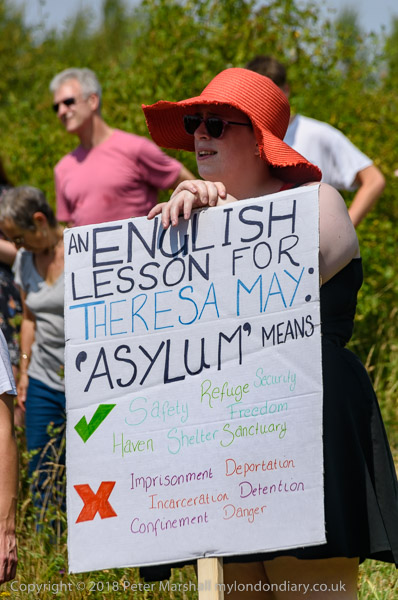 AN ENGLISH
LESSON FOR
THERESA MAY:
'ASYLUM' MEANS
Safety Refuge Security
Freedom
Haven Shelter Sanctuary
Imprisonment Deportation
Incarceration Detention
Confinement Danger
Copyright © 2018 Peter Marshall mylondondiary.co.uk